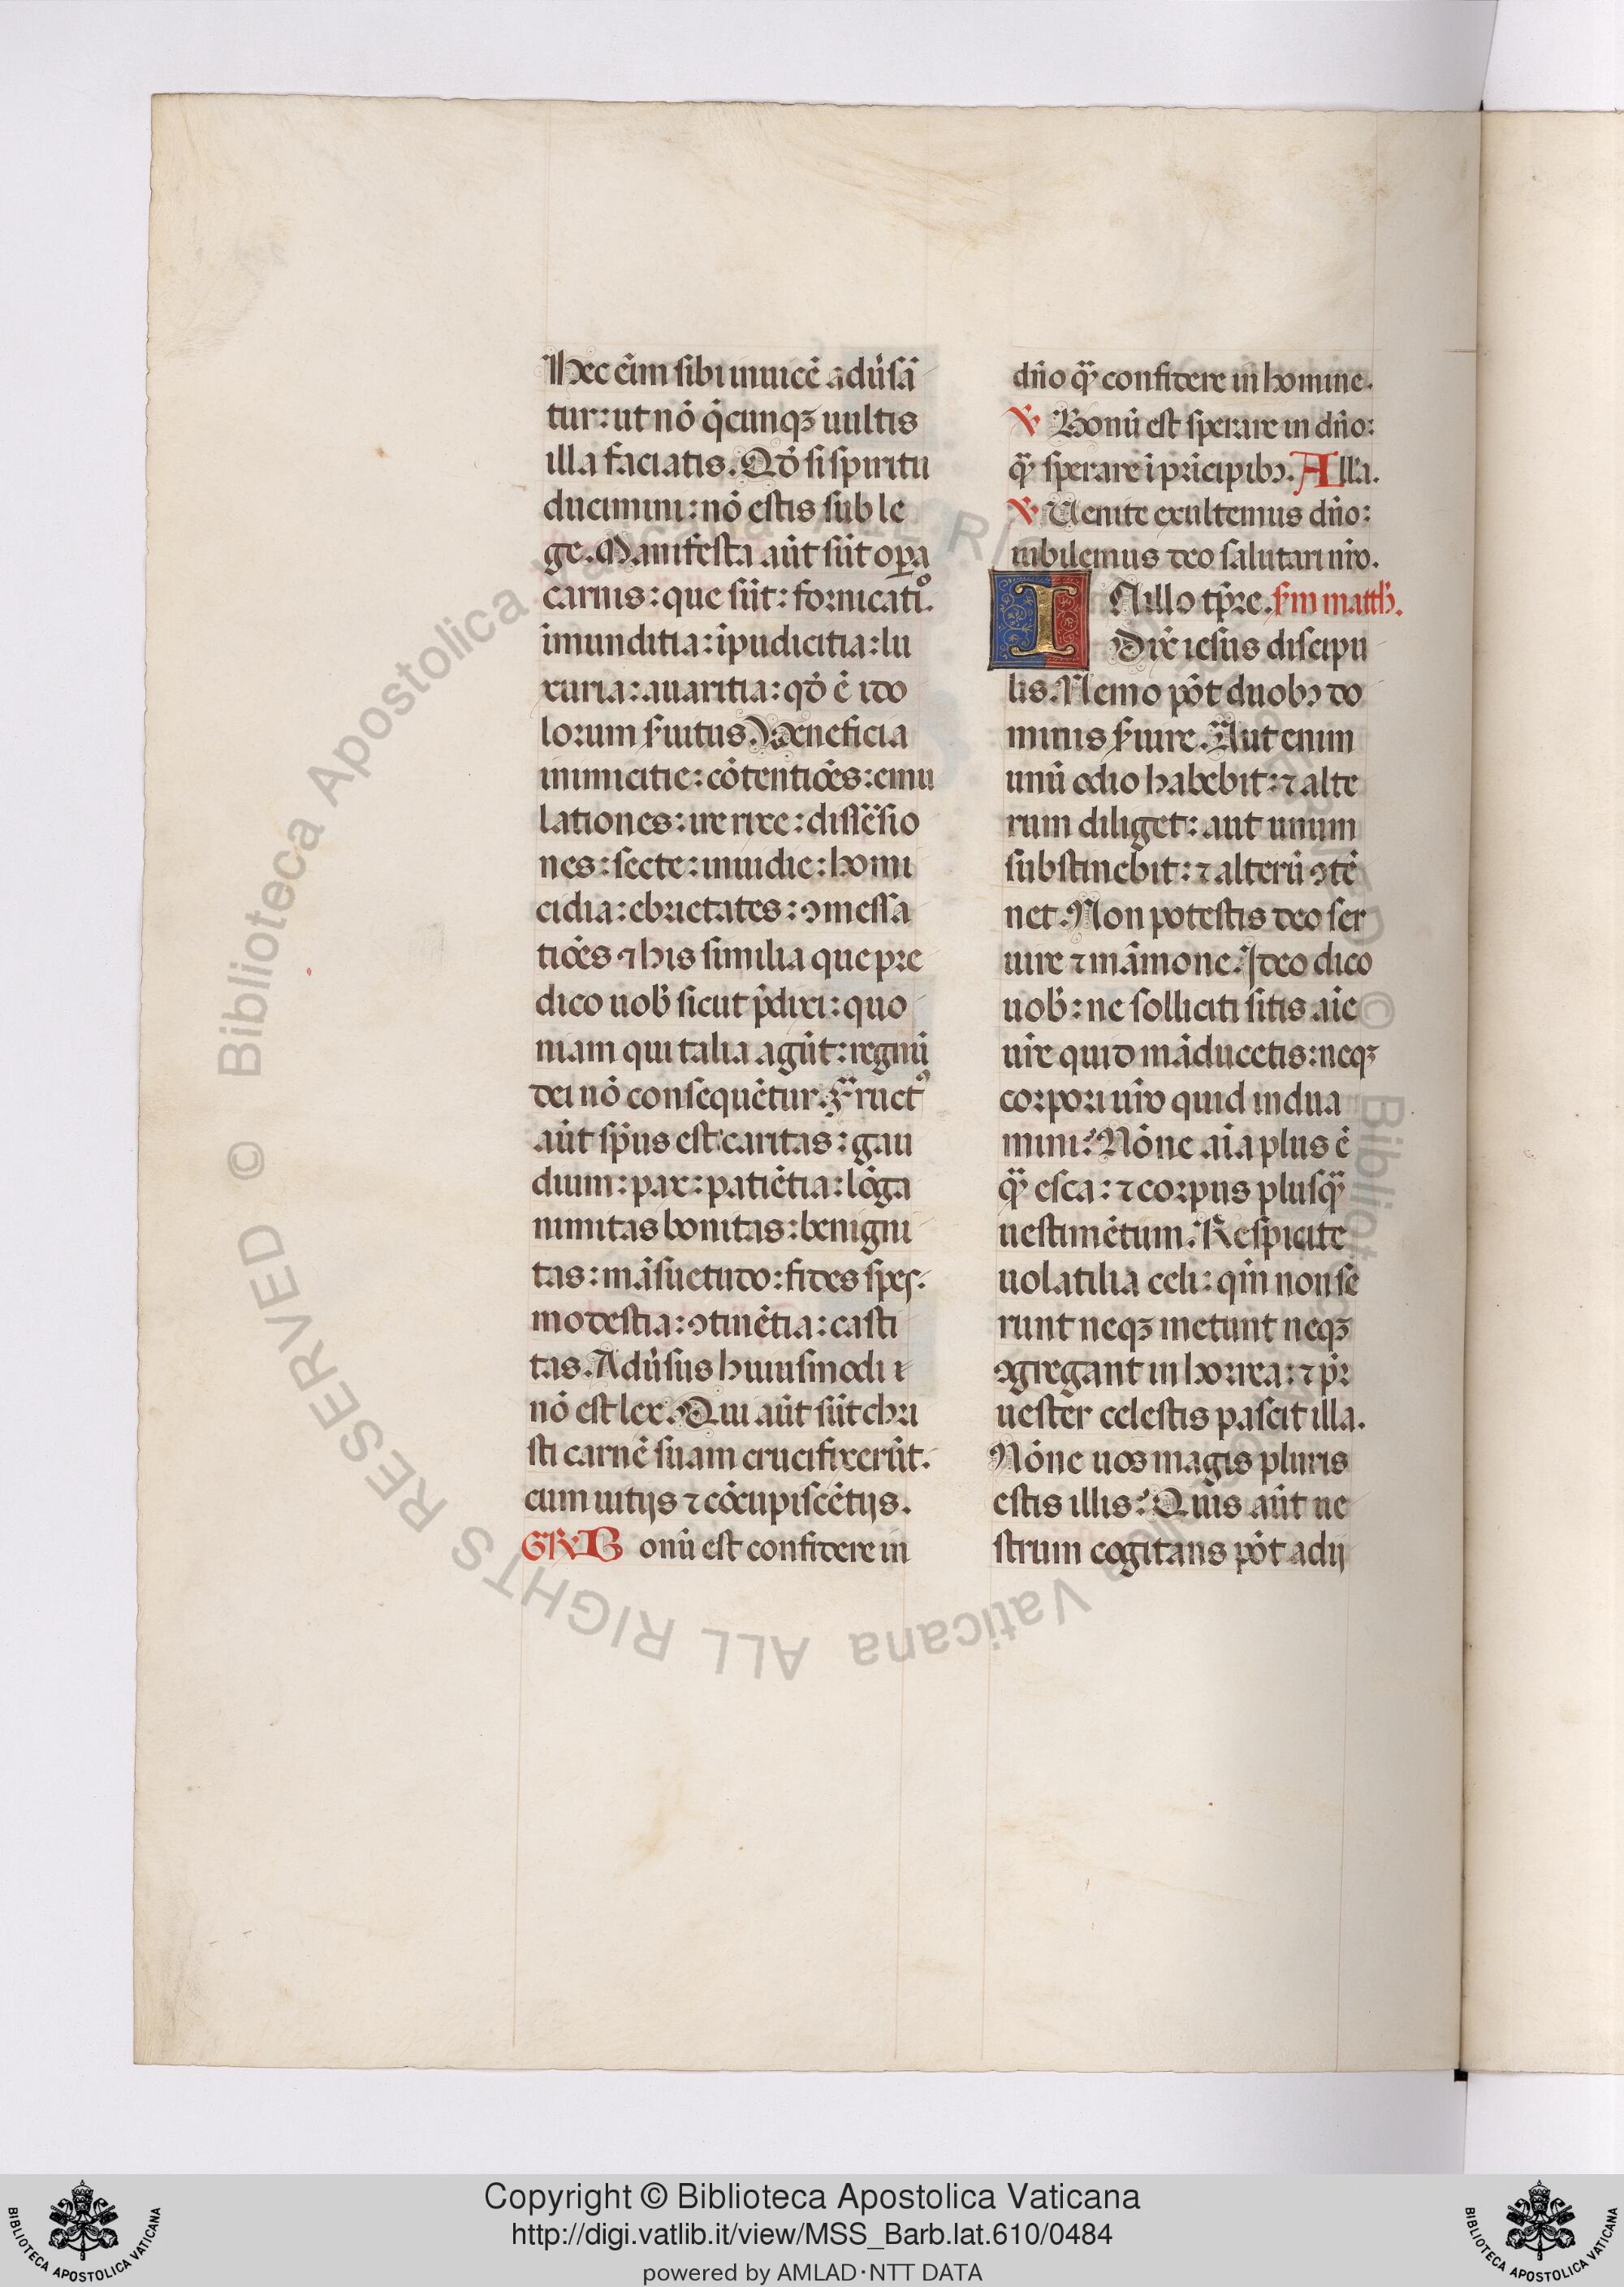 Hec ei̅m sibi inuice̅ adu̅sa̅
tur: ut no̅ q̅cunqꝫ uultis
illa faciatis. Qd̅ si spiritu
ducimini: no̅ estis sub le
ge. Manifesta aūt sūt oꝑa
carnis: que sūt: fornicatiꝰ.
imunditia: īpudicitia: lu
xuria: auaritia: qd̅ ē ido
lorum ẜuitus. Ueneficia
inimicitie: cōtentiōes: emu
lationes: ire rixe: dissēsio
nes: secte: inuidie: homi
cidia: ebrietates: ꝯmessa
tiōes ⁊ his similia que pre
dico uob̅ sicut p̅dixi: quo
niam qui talia agūt: regnū
dei nō consequētur. Fructꝰ
aūt sp̅us est caritas: gau
dium: pax: patiētia: lōga
nimitas bonitas: benigni
tas: māsuetudo: fides spes.
modestia: ꝯtinētia: casti
tas. Adu̅sus huiusmodi
nō est lex. Qui aūt sūt chri
sti carnē suam crucifixerūt.
cum uitijs ⁊ cōcupiscētijs.
GR. Bonū est confidere in
dn̅o qꝫ̅ confidere in homine.
℣ Bonū est sperare in dn̅o:
qꝫ̅ sperare ī pricipibꝫ. All'a.
℣ Uenite exultemus dn̅o:
iubilemus deo salutari nr̅o.
IN illo tp̅re. ẜm matth̅.
Dix̅ iesus discipu
lis. Nemo pōt duobꝫ do
minis ẜuire. Aut enim
unū odio habebit: ⁊ alte
rum diliget: aut unum
substinebit: ⁊ alterū ꝯtē
net. Non potestis deo ser
uire ⁊ māmone. Ideo dico
uob̅: ne solliciti sitis aīe
ur̅e quid māducetis: neqꝫ
corpori ur̅o quid indua
mini. Nōne aīa plus ē
qꝫ̅ esca: ⁊ corpus plusqꝫ̅
uestimētum. Respicite
uolatilia celi: qm̅ non se
runt neqꝫ metunt neqꝫ
ꝯgregant in horrea: ⁊ pr̅
uester celestis pascit illa.
Nōne uos magis pluris
estis illis? Quis aūt ue
strum cogitans pōt adij
Copyright © Biblioteca Apostolica Vaticana
http://digi.vatlib.it/view/MSS_Barb.lat.610/0484
powered by AMLAD·NTT DATA